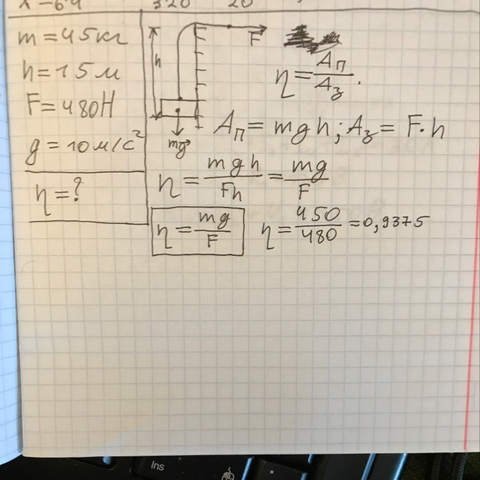 x = 64 320 20
m = 45 кг
h = 15 м
F = 480 Н
g = 10 м/с²
η = ?
h
F
mg
η = Aп/Aз.
Aп = mgh; Aз = F·h
η = mgh/Fh = mg/F
η = mg/F η = 450/480 = 0,9375
Ins